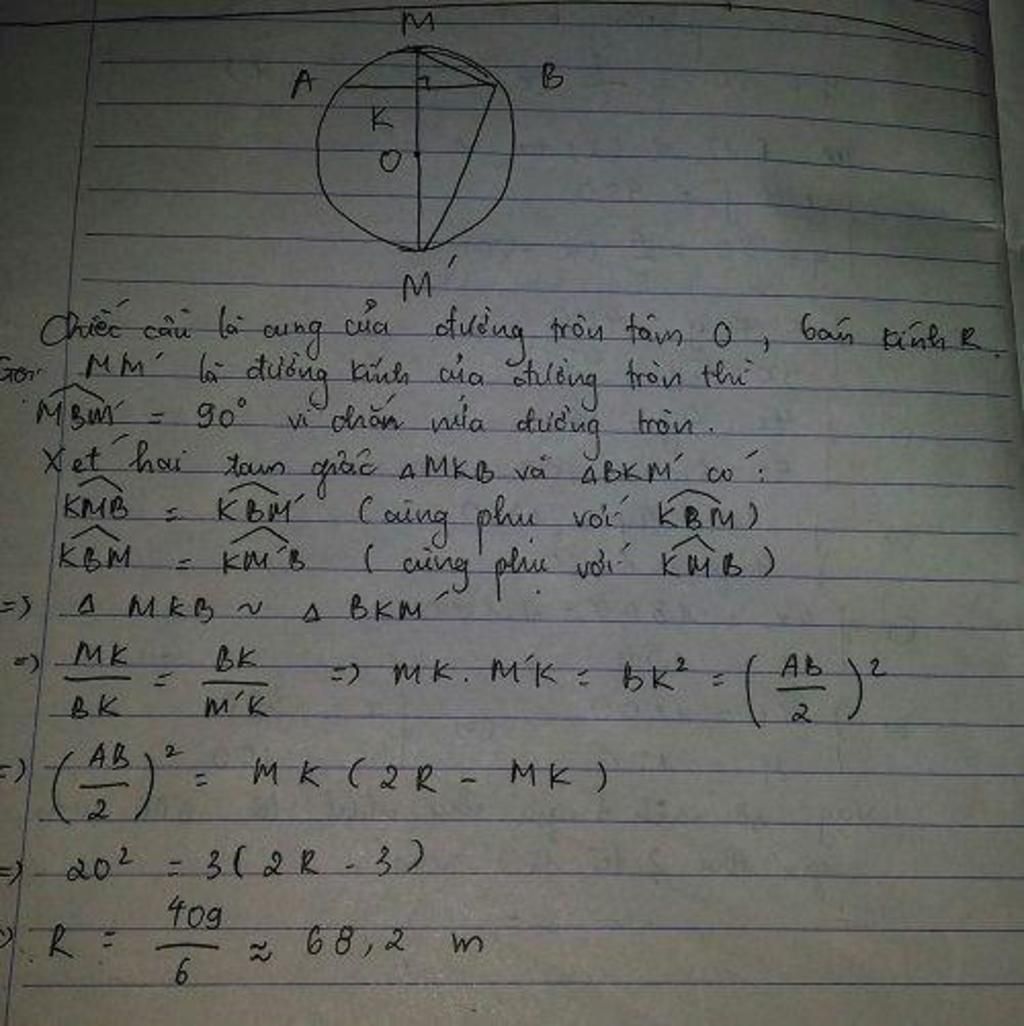 M
A B
K
O
M'
Chiếc cầu là cung của đường tròn tâm O, bán kính R.
Gọi MM' là đường kính của đường tròn thì
\widehat{MBM'} = 90° vì chắn nửa đường tròn.
Xét hai tam giác ΔMKB và ΔBKM' có:
\widehat{KMB} = \widehat{KBM'} (cùng phụ với \widehat{KBM})
\widehat{KBM} = \widehat{KM'B} (cùng phụ với \widehat{KMB})
=> Δ MKB ~ Δ BKM'
=> MK/BK = BK/M'K => MK. M'K = BK² = (AB/2)²
=> (AB/2)² = MK (2R - MK)
=> 20² = 3(2R - 3)
=> R = 409/6 ≈ 68,2 m